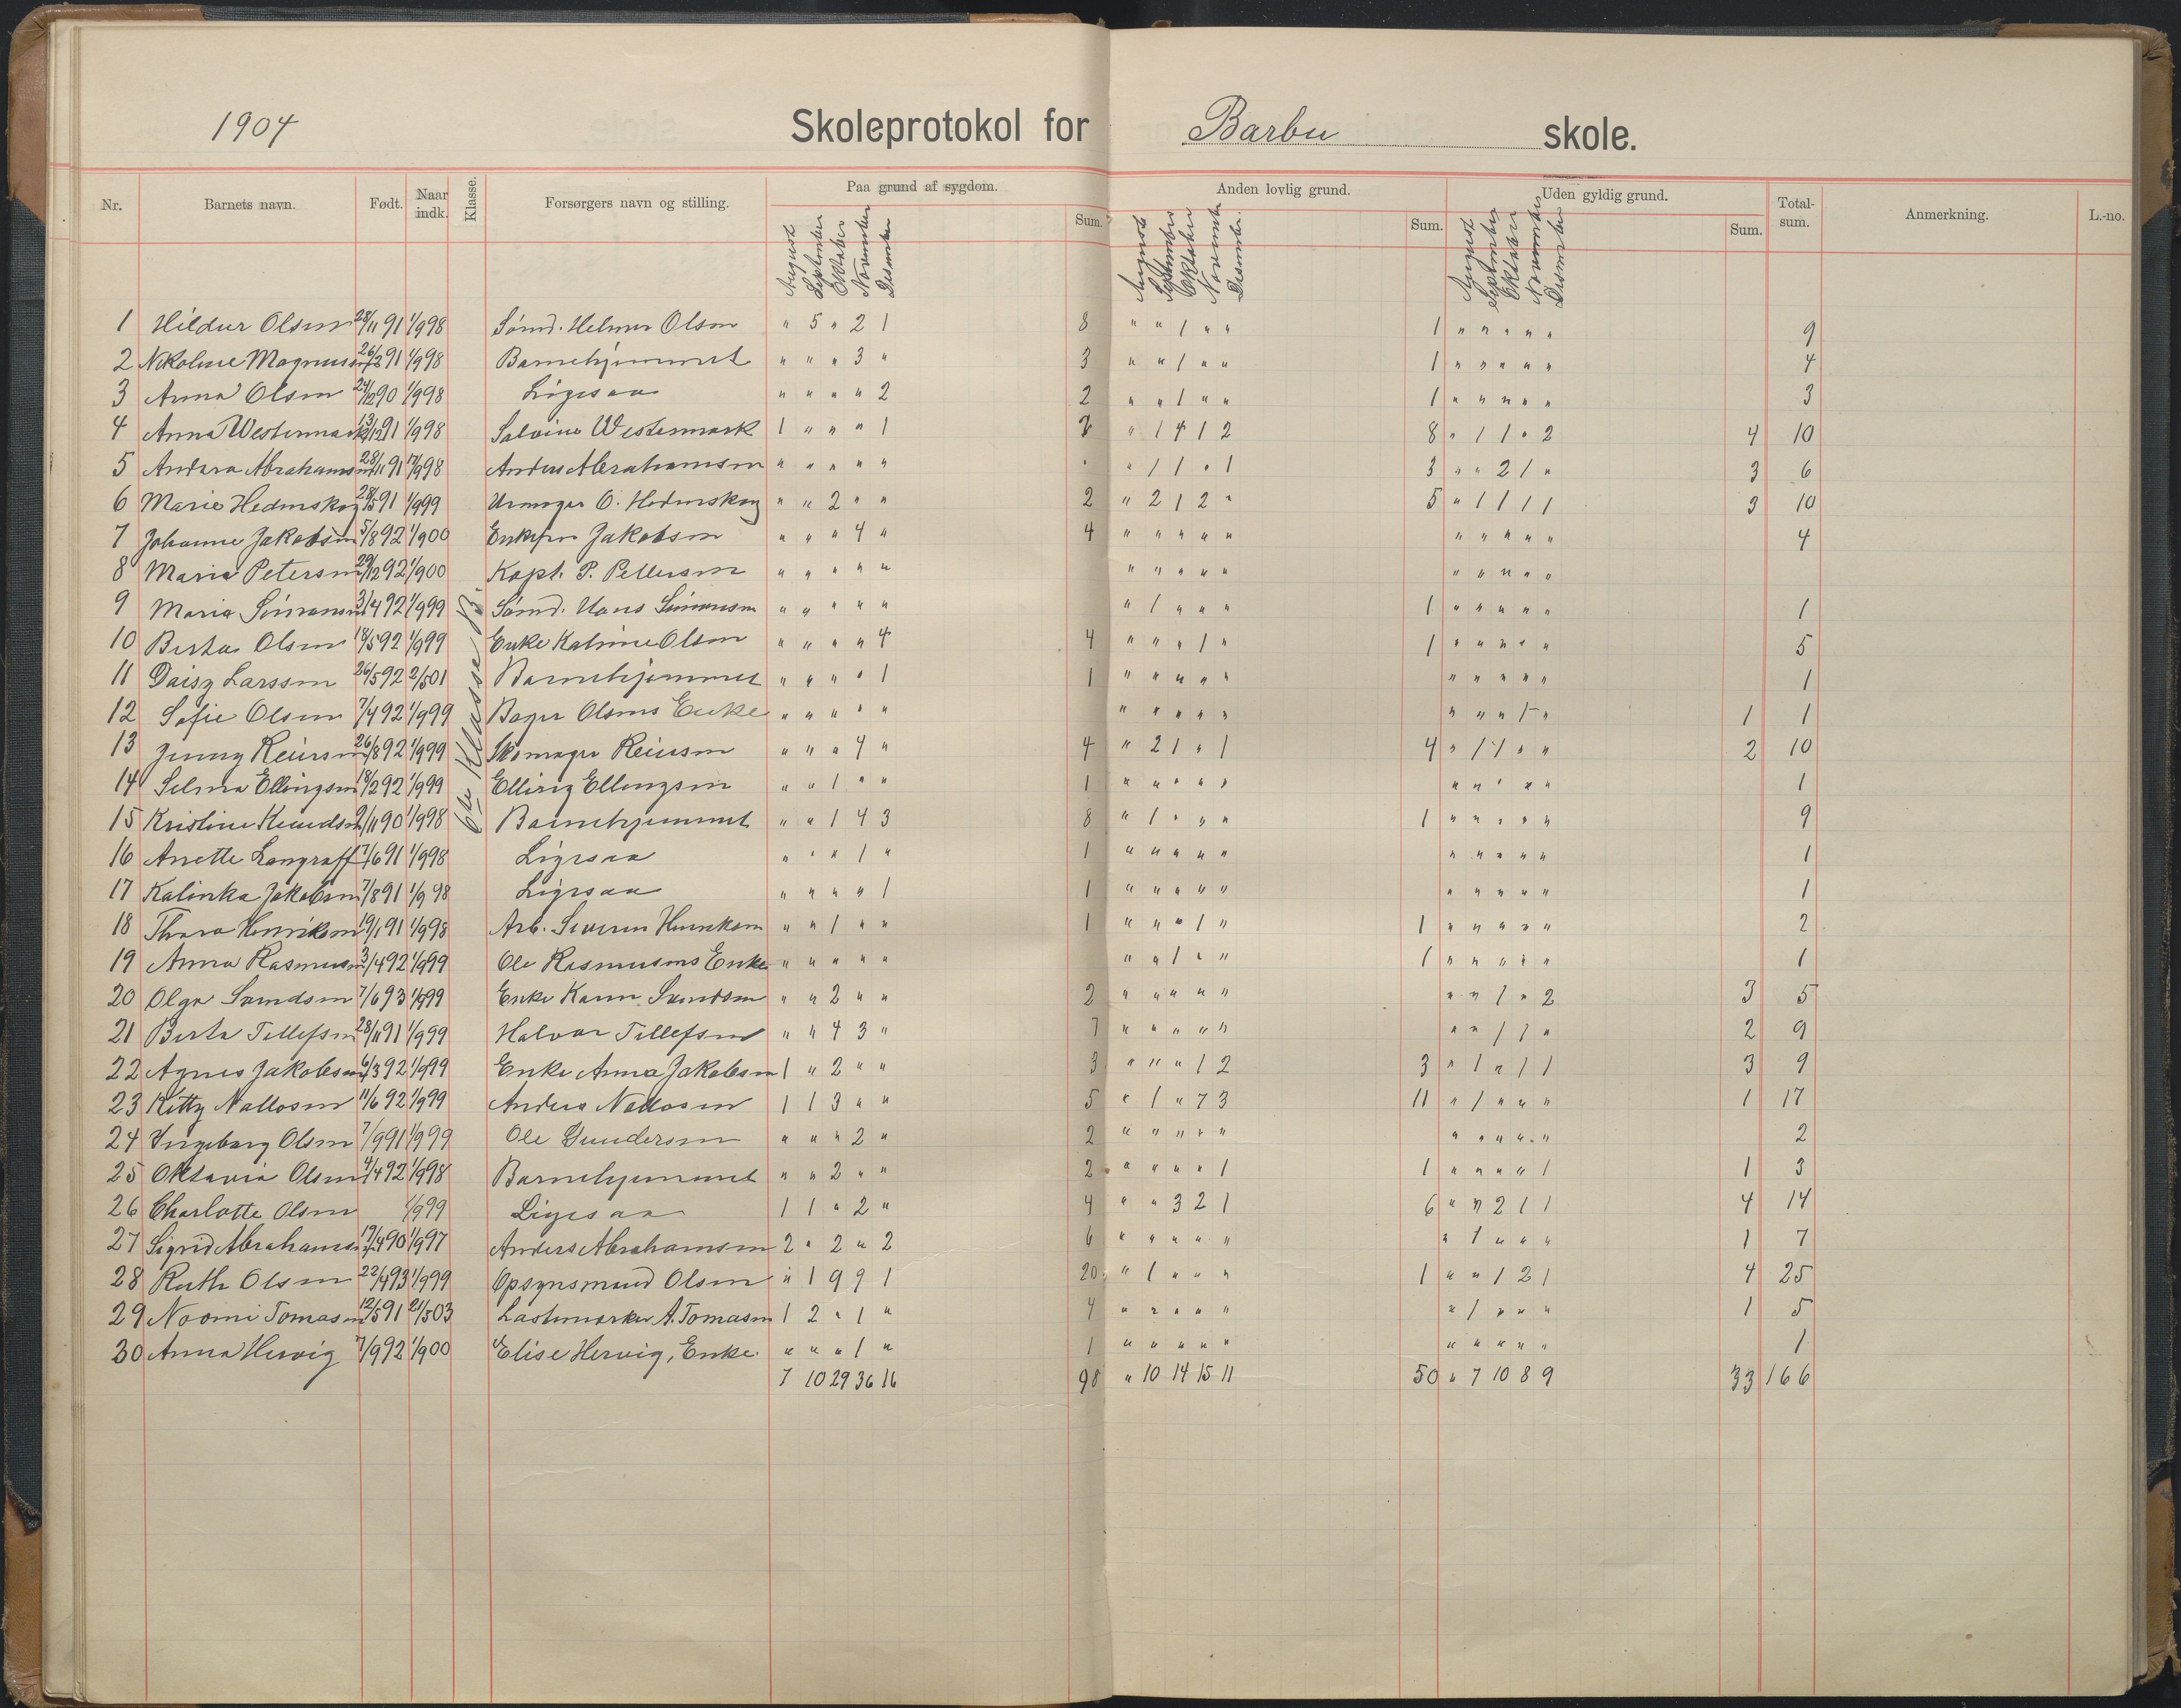 1904 Skoleprotokol for Barbu skole.
Nr. Barnets navn. Født. Naar indk. Klasse. Forsørgers navn og stilling. Paa grund af sygdom. Sum. Anden lovlig grund. Sum. Uden gyldig grund. Sum. Total-sum. Anmerkning. L.-no.
August September Oktober November Desember August September Oktober November Desember August September Oktober November Desember
6te Klasse
1 Hildur Olsen 28/11 91 1/9 98 Sømd. Helmer Olsen " 5 " 2 1 8 " " 1 " " 1 " " " " " 9
2 Nikoline Magnussen 26/2 91 1/9 98 Barnehjemmet " " " 3 " 3 " " 1 " " 1 " " " " " 4
3 Anna Olsen 24/12 90 1/9 98 Ligesaa " " " " 2 2 " " 1 " " 1 " " " " " 3
4 Anna Westermark 13/12 91 1/9 98 Salvine Westermark 1 " " " 1 2 " 1 4 1 2 8 " 1 1 " 2 4 10
5 Andara Abrahamsen 28/11 91 17/9 98 Anders Abrahamsen " " " " " " " 1 1 " 1 3 " " 2 1 " 3 6
6 Marie Hedenskog 28/5 91 1/9 99 Urmager O. Hedenskog " " 2 " " 2 " 2 1 2 " 5 " 1 1 1 1 3 10
7 Johanne Jakobsen 5/8 92 1/9 00 Enkefru Jakobsen " " " 4 " 4 " " " " " " " " " " 4
8 Maria Petersen 29/12 92 1/9 00 Kapt. P. Pettersen " " " " " " " " " " " " " " "
9 Maria Simonsen 3/4 92 1/9 99 Sømd. Hans Simonsen " " " " " " 1 " " " 1 " " " " " 1
10 Berta Olsen 18/5 92 1/9 99 Enke Katrine Olsen " " " " 4 4 " " " 1 " 1 " " " " " 5
11 Daisy Larssen 26/5 92 2/5 01 Barnehjemmet " " " " 1 1 " " " " " " " " " " 1
12 Sofie Olsen 7/4 92 1/9 99 Bager Olsens Enke " " " " " " " " " " " " " 1 " 1 1
13 Jenny Reiersen 26/8 92 1/9 99 Skomager Reiersen " " " 4 " 4 " 2 1 " 1 4 " 1 1 " " 2 10
14 Selma Ellingsen 18/2 92 1/9 99 Elling Ellingsen " " 1 " " 1 " " " " " " " " " " 1
15 Kristine Knudsen 2/11 90 1/9 98 Barnehjemmet " " 1 4 3 8 " 1 " " " 1 " " " " " 9
16 Anette Langraff 7/6 91 1/9 98 Ligesaa " " " 1 " 1 " " " " " " " " " " 1
17 Kalinka Jakobsen 7/8 91 1/9 98 Ligesaa " " " " 1 1 " " " " " " " " " " 1
18 Thora Henriksen 19/1 91 1/9 98 Arb. Severin Henriksen " " 1 " " 1 " " " 1 " 1 " " " " " 2
19 Anna Rasmussen 3/4 92 1/9 99 Ole Rasmusens Enke " " " " " " " 1 " " 1 " " " " " 1
20 Olga Svendsen 7/6 93 1/9 99 Enke Karen Svendsen " " 2 " " 2 " " " " " " " 1 " 2 3 5
21 Berta Tellefsen 28/11 91 1/9 99 Halvor Tellefsen " " 4 3 " 7 " " " " " " " 1 1 " 2 9
22 Agnes Jakobsen 6/3 92 1/9 99 Enke Anna Jakobsen 1 " 2 " " 3 " " " 1 2 3 " 1 " 1 1 3 9
23 Kitty Nallosen 11/6 92 1/9 99 Anders Nallosen 1 1 3 " " 5 " 1 " 7 3 11 " 1 " " " 1 17
24 Ingeborg Olsen 7/9 91 1/9 99 Ole Gundersen " " " 2 " 2 " " " " " " " " " " 2
25 Oktavia Olsen 4/4 92 1/9 98 Barnehjemmet " " 2 " " 2 " " " " 1 1 " " " " 1 1 3
26 Charlotte Olsen 1/9 99 Ligesaa 1 1 " 2 " 4 " " 3 2 1 6 " " 2 1 1 4 14
27 Sigrid Abrahamsen 19/4 90 1/9 97 Anders Abrahamsen 2 " 2 " 2 6 " " " " " " 1 " " " 1 7
28 Ruth Olsen 22/4 93 1/9 99 Opsynsmand Olsen " 1 9 9 1 20 " 1 " " " 1 " " 1 2 1 4 25
29 Noomi Tomasen 12/5 91 21/5 03 Lastemærker A. Tomasen 1 2 " 1 " 4 " " " " " " 1 " " " 1 5
30 Anna Hervig 7/9 92 1/9 00 Elise Hervig, Enke. " " " 1 " 1 " " " " " " " " " " 1
7 10 29 36 16 98 " 10 14 15 11 50 " 7 10 8 9 33 166